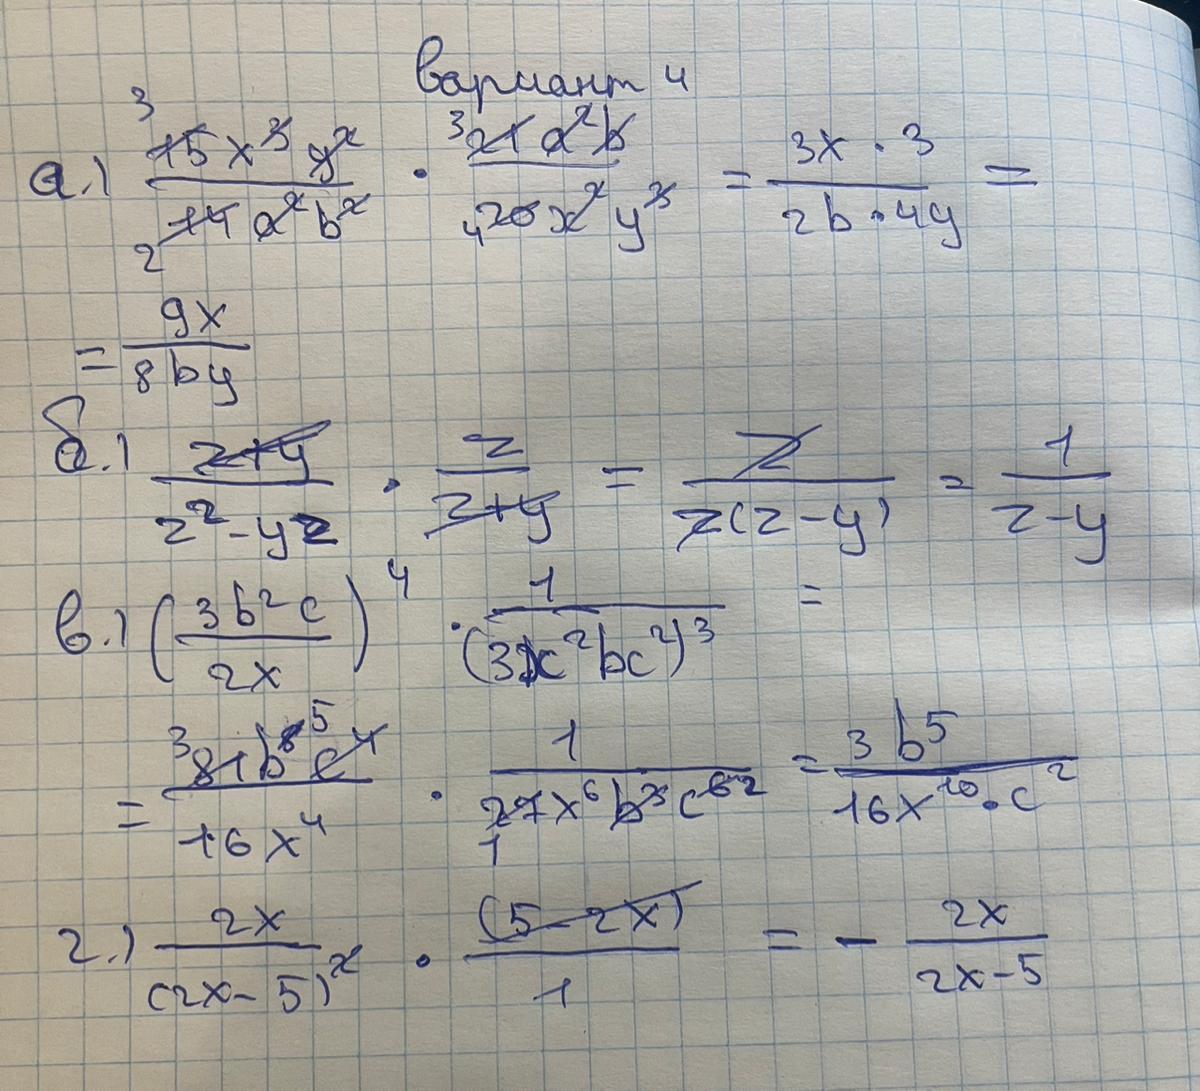 вариант 4
а.) 15x³y²/14a²b² · 21a²b/20x²y³ = 3x · 3/2b · 4y =
= 9x/8by
б.) z+y/z²-yz · z/z+y = z/z(z-y) = 1/z-y
в.) (3b²c/2x)⁴ · 1/(3x²bc²)³ =
= 81b⁸c⁴/16x⁴ · 1/27x⁶b³c⁶ = 3b⁵/16x¹⁰·c²
г.) 2x/(2x-5)² · (5-2x)/1 = - 2x/2x-5